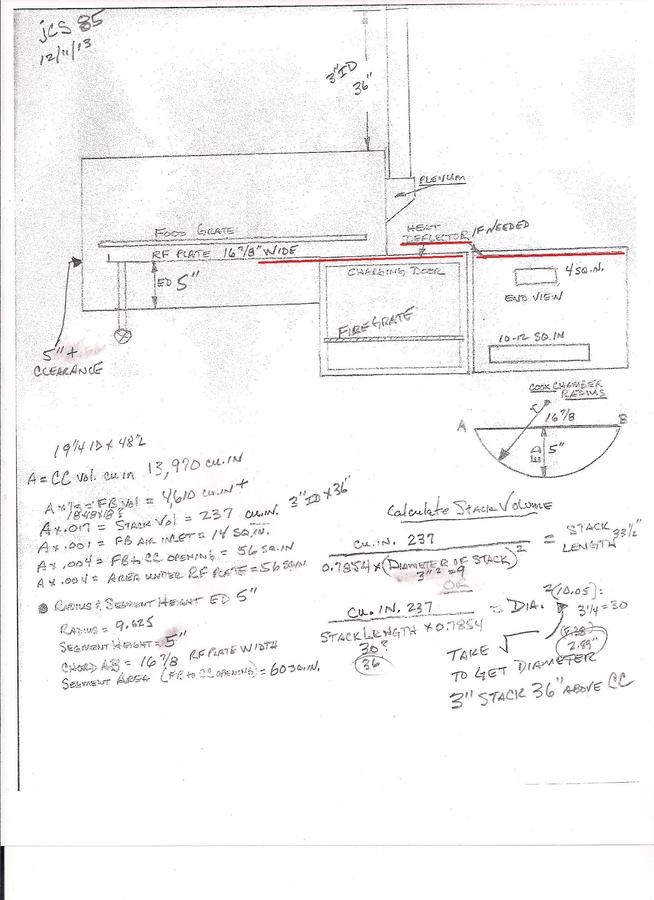 jCS 85
12/11/13
3" ID
36"
PLENUM
FOOD GRATE
HEAT DEFLECTOR IF NEEDED
RF PLATE 16 7/8" WIDE
CHARGING DOOR
4 SQ.IN.
ED 5"
END VIEW
FIRE GRATE
10-12 SQ.IN
5"+
CLEARANCE
COOK CHAMBER
RADIUS
A
16 7/8
B
R
ED
5"
19 1/4 ID X 48"L
A = CC VOL. CU.IN 13,970 CU.IN
A X 1/3 = FB VOL = 4,610 CU.IN +
18X18X18?
A X .017 = STACK VOL = 237 CU.IN. 3"ID X 36"
A X .001 = FB AIR INLET = 14 SQ.IN.
A X .004 = FB to CC OPENING = 56 SQ.IN
A X .004 = AREA UNDER RF PLATE = 56 SQ.IN
RADIUS & SEGMENT HEIGHT ED 5"
RADIUS = 9.625
SEGMENT HEIGHT = 5"
CHORD AB = 16 7/8 RF PLATE WIDTH
SEGMENT AREA (FB to CC OPENING) = 60 SQ.IN.
Calculate STACK VOLUME
CU.IN. 237
0.7854 X (DIAMETER OF STACK)² = STACK LENGTH 33 1/2"
3"² = 9
OR
CU.IN. 237
STACK LENGTH X 0.7854 = DIA. 2(10.05):
3 1/4 = 30
30?
36
2.89"
TAKE √
TO GET DIAMETER
3" STACK 36" ABOVE CC